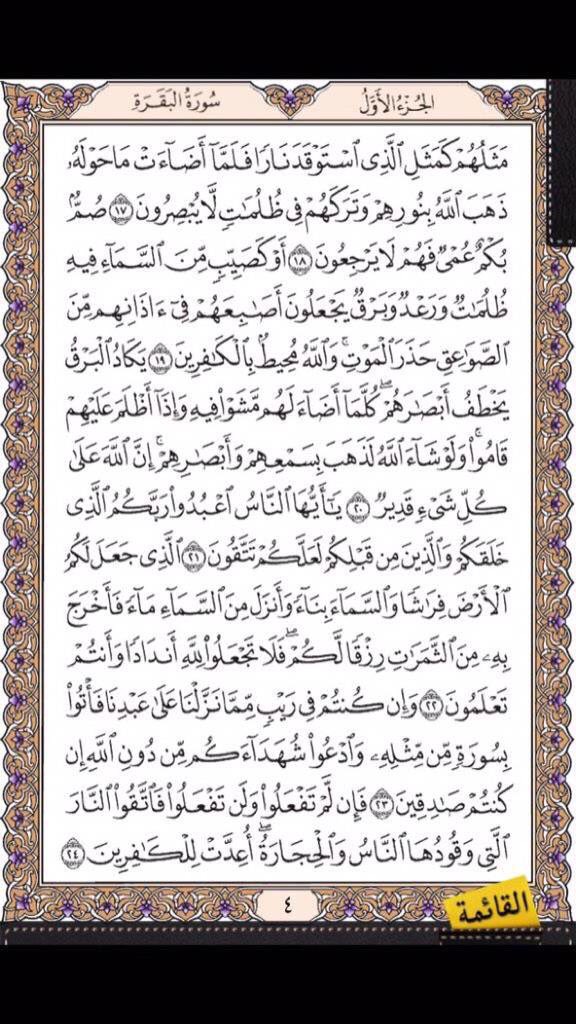 الجُزْءُ الأَوَّلُ سُورَةُ البَقَرَةِ
مَثَلُهُمْ كَمَثَلِ ٱلَّذِى ٱسْتَوْقَدَ نَارًا فَلَمَّآ أَضَآءَتْ مَا حَوْلَهُۥ
ذَهَبَ ٱللَّهُ بِنُورِهِمْ وَتَرَكَهُمْ فِى ظُلُمَٰتٍ لَّا يُبْصِرُونَ ١٧ صُمٌّۢ
بُكْمٌ عُمْىٌ فَهُمْ لَا يَرْجِعُونَ ١٨ أَوْ كَصَيِّبٍ مِّنَ ٱلسَّمَآءِ فِيهِ
ظُلُمَٰتٌ وَرَعْدٌ وَبَرْقٌ يَجْعَلُونَ أَصَٰبِعَهُمْ فِىٓ ءَاذَانِهِم مِّنَ
ٱلصَّوَٰعِقِ حَذَرَ ٱلْمَوْتِ ۚ وَٱللَّهُ مُحِيطٌۢ بِٱلْكَٰفِرِينَ ١٩ يَكَادُ ٱلْبَرْقُ
يَخْطَفُ أَبْصَٰرَهُمْ ۖ كُلَّمَآ أَضَآءَ لَهُم مَّشَوْا۟ فِيهِ وَإِذَآ أَظْلَمَ عَلَيْهِمْ
قَامُوا۟ ۚ وَلَوْ شَآءَ ٱللَّهُ لَذَهَبَ بِسَمْعِهِمْ وَأَبْصَٰرِهِمْ ۚ إِنَّ ٱللَّهَ عَلَىٰ
كُلِّ شَىْءٍ قَدِيرٌ ٢٠ يَٰٓأَيُّهَا ٱلنَّاسُ ٱعْبُدُوا۟ رَبَّكُمُ ٱلَّذِى
خَلَقَكُمْ وَٱلَّذِينَ مِن قَبْلِكُمْ لَعَلَّكُمْ تَتَّقُونَ ٢١ ٱلَّذِى جَعَلَ لَكُمُ
ٱلْأَرْضَ فِرَٰشًا وَٱلسَّمَآءَ بِنَآءً وَأَنزَلَ مِنَ ٱلسَّمَآءِ مَآءً فَأَخْرَجَ
بِهِۦ مِنَ ٱلثَّمَرَٰتِ رِزْقًا لَّكُمْ ۖ فَلَا تَجْعَلُوا۟ لِلَّهِ أَندَادًا وَأَنتُمْ
تَعْلَمُونَ ٢٢ وَإِن كُنتُمْ فِى رَيْبٍ مِّمَّا نَزَّلْنَا عَلَىٰ عَبْدِنَا فَأْتُوا۟
بِسُورَةٍ مِّن مِّثْلِهِۦ وَٱدْعُوا۟ شُهَدَآءَكُم مِّن دُونِ ٱللَّهِ إِن
كُنتُمْ صَٰدِقِينَ ٢٣ فَإِن لَّمْ تَفْعَلُوا۟ وَلَن تَفْعَلُوا۟ فَٱتَّقُوا۟ ٱلنَّارَ
ٱلَّتِى وَقُودُهَا ٱلنَّاسُ وَٱلْحِجَارَةُ ۖ أُعِدَّتْ لِلْكَٰفِرِينَ ٢٤
٤
القائمة